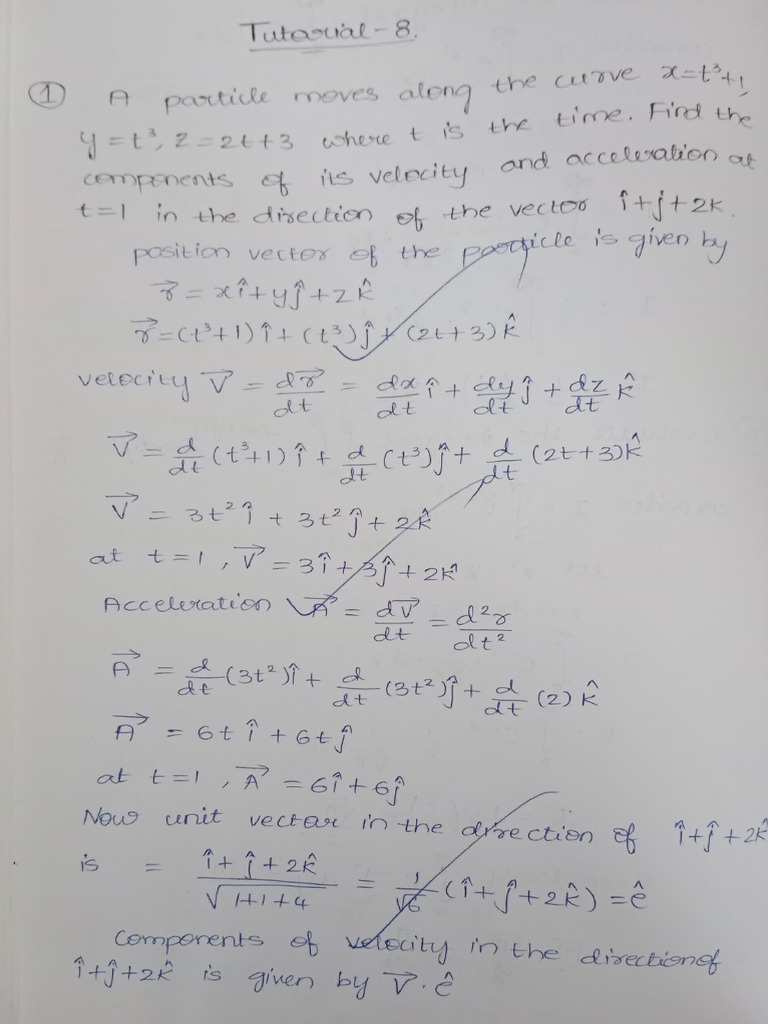 Tutorial-8.
① A particle moves along the curve x=t³+1,
y=t³, z=2t+3 where t is the time. Find the
components of its velocity and acceleration at
t=1 in the direction of the vector î+ĵ+2k.
position vector of the particle is given by
r⃗ = xî+yĵ+zk̂
r⃗=(t³+1)î+(t³)ĵ+(2t+3)k̂
velocity V⃗ = dr⃗/dt = dx/dt î + dy/dt ĵ + dz/dt k̂
V⃗ = d/dt (t³+1) î + d/dt (t³)ĵ+ d/dt (2t+3)k̂
V⃗ = 3t² î + 3t² ĵ + 2k̂
at t=1, V⃗ = 3î+3ĵ+2k̂
Acceleration A⃗ = dV⃗/dt = d²r/dt²
A⃗ = d/dt (3t²)î + d/dt (3t²)ĵ + d/dt (2) k̂
A⃗ = 6t î + 6t ĵ
at t=1, A⃗ = 6î+6ĵ
Now unit vector in the direction of î+ĵ+2k̂
is = (î+ĵ+2k̂)/√(1+1+4) = 1/√6 (î+ĵ+2k̂) = ê
components of velocity in the direction of
î+ĵ+2k̂ is given by V⃗.ê